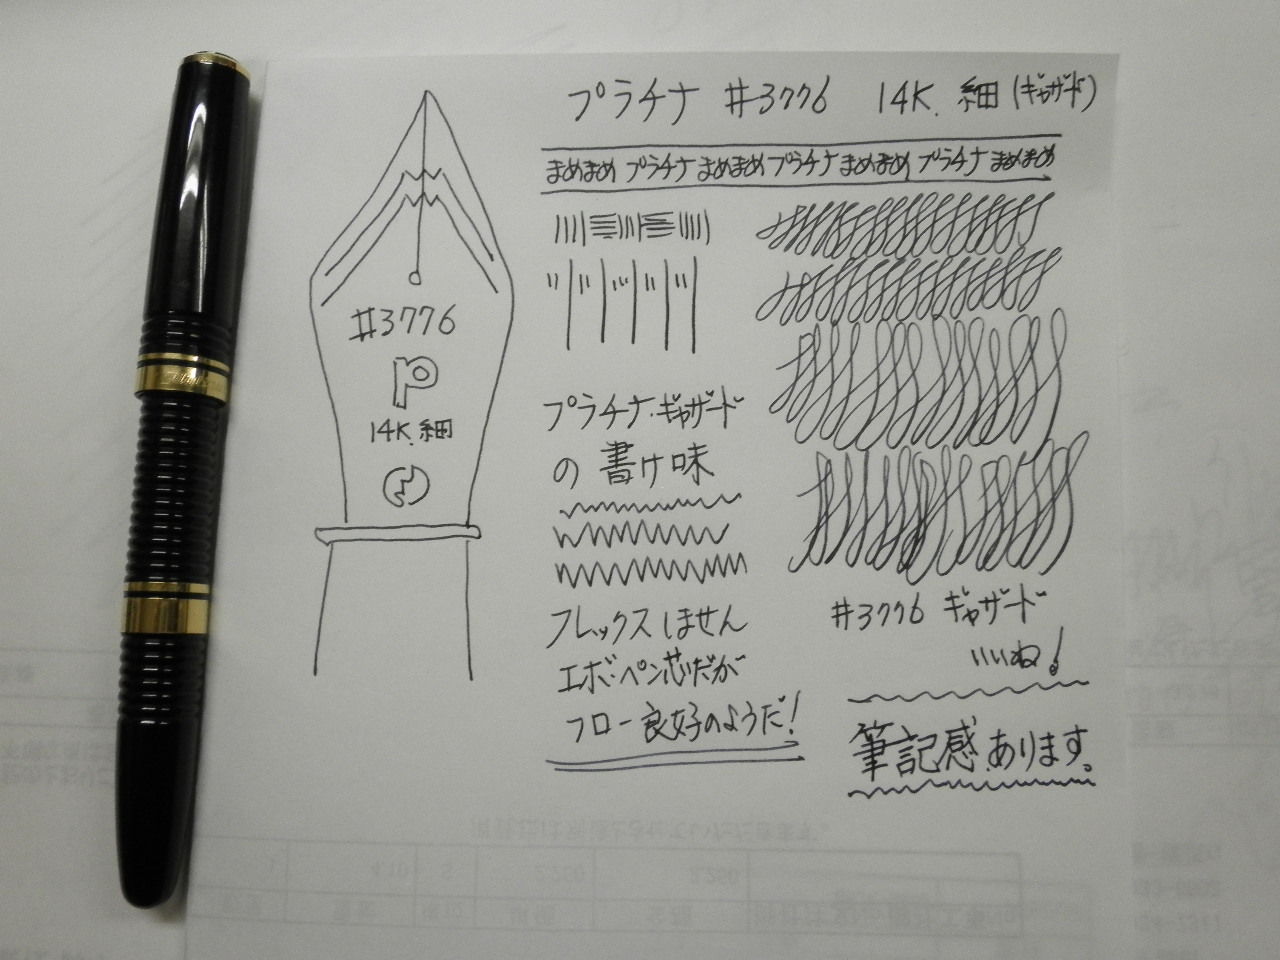 プラチナ #3776 14K. 細 (ギャザード)
まめまめ プラチナ まめまめ プラチナ まめまめ プラチナ まめまめ
#3776
P
14K. 細
プラチナ・ギャザード
の 書け味
フレックスしません
エボ・ペン芯だが
フロー良好のようだ!
#3776 ギャザード
いいね!
筆記感あります。